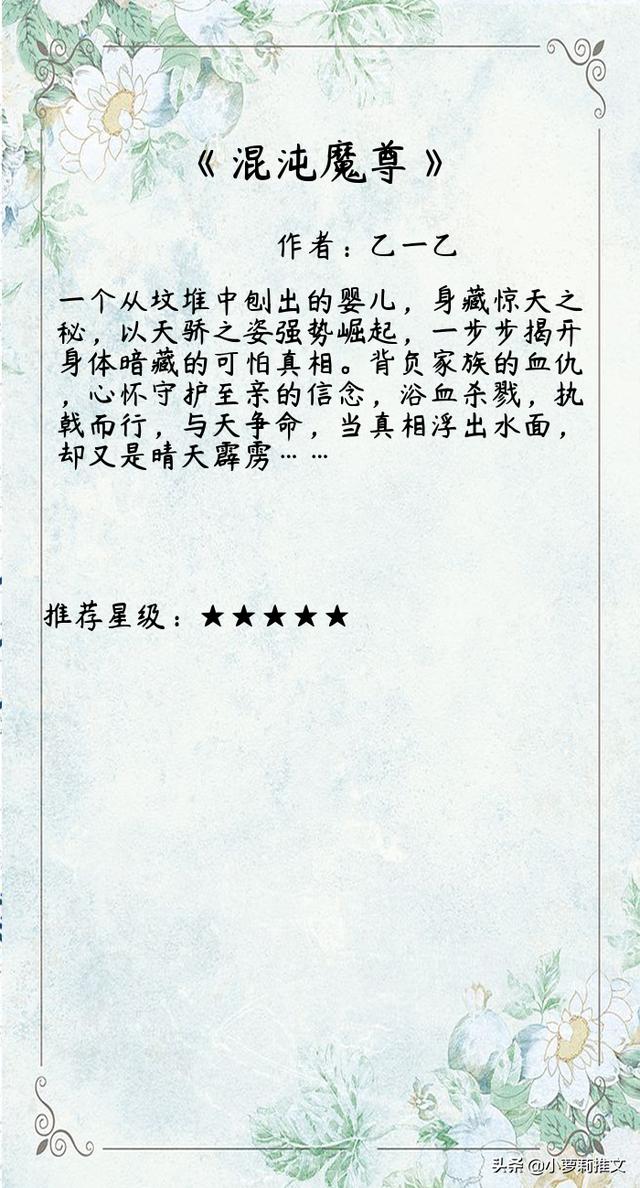 《混沌魔尊》
作者：乙一乙
一个从坟堆中刨出的婴儿，身藏惊天之
秘，以天骄之姿强势崛起，一步步揭开
身体暗藏的可怕真相。背负家族的血仇
，心怀守护至亲的信念，浴血杀戮，执
戟而行，与天争命，当真相浮出水面，
却又是晴天霹雳……
推荐星级：★★★★★
头条 @小萝莉推文